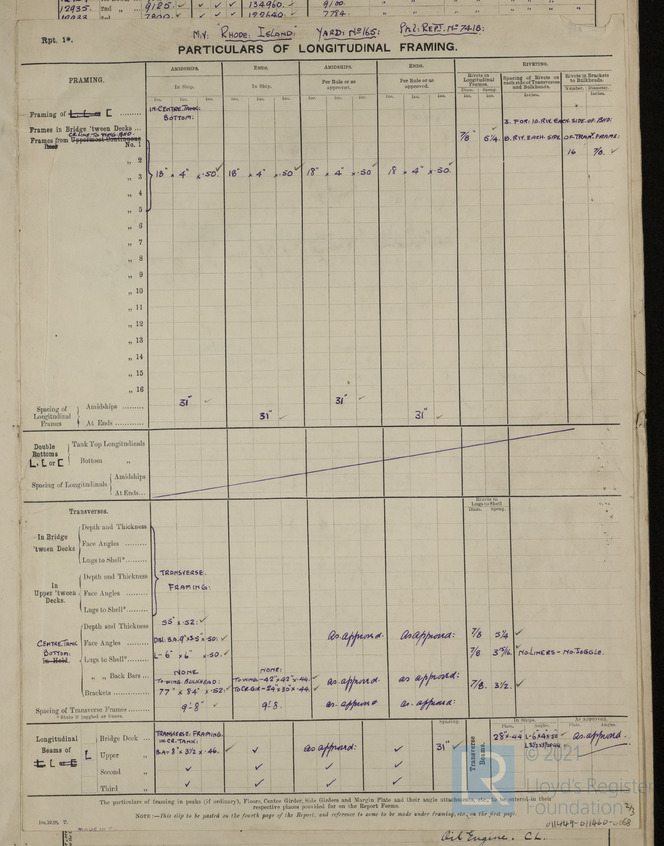 12935. 2nd „ 9125. ✓ ✓ ✓ 134960. ✓ 9100
7784.
M.V. "RHODE ISLAND: YARD: Nº 165: PAL: REPT: Nº 7418:
Rpt. 1*.
PARTICULARS OF LONGITUDINAL FRAMING.
FRAMING.
AMIDSHIPS. ENDS. AMIDSHIPS. ENDS. RIVETING.
In Ship. In Ship. Per Rule or as approved. Per Rule or as approved.
Rivets in Longitudinal Frames. Spacing of Rivets on each side of Transverses and Bulkheads. Rivets in Brackets to Bulkheads.
Diam. Spcng. Inches. Number. Diameter. Inches.
Ins. Ins. Ins. Ins. Ins. Ins. Ins. Ins. Ins. Ins. Ins. Ins.
Framing of [ ..........
IN CENTRE TANK:
BOTTOM:
Frames in Bridge 'tween Decks ...
Frames from Uppermost Continuous
No. 1
7/8" 5¼.
EACH SIDE OF BHD:
EACH SIDE OF TRAN: FRAME:
16 7/8. ✓
„ 2
„ 3 18" x 4" x .50 ✓ 18" x 4" x .50 ✓ 18" x 4" x .50 18 x 4" x .50.
„ 4
„ 5
„ 6
„ 7
„ 8
„ 9
„ 10
„ 11
„ 12
„ 13
„ 14
„ 15
„ 16
Spacing of Longitudinal Frames
Amidships ......... 31" ✓ 31" ✓
At Ends....... 31" ✓ 31" ✓
Double Bottoms L, [ or [
Tank Top Longitudinals
Bottom „
Spacing of Longitudinals
Amidships
At Ends...
Transverses.
Rivets in Lugs to Shell
Diam. Spcng.
In Bridge 'tween Decks
Depth and Thickness
Face Angles .........
Lugs to Shell*........
In Upper 'tween Decks.
Depth and Thickness
Face Angles .........
Lugs to Shell*........
TRANSVERSE.
FRAMING:
CENTRE TANK
BOTTOM:
In Hold.
Depth and Thickness 55" x .52: ✓
Face Angles ......... as approved. as approved: 7/8 5¼ ✓
Lugs to Shell*........ L- 6" x 6" x .50. ✓ 7/8 NO LINERS - NO JOGGLE.
„ „ Back Bars ... NONE NONE:
TO WING BULKHEAD: TO WING-42"x42"x.44. ✓ as approved. as approved:
Brackets ............ 77" x 84" x .52 ✓ 7/8. 3½. ✓
Spacing of Transverse Frames 9'-8" ✓ 9'-8. as approve as approved:
*State if joggled or liners.
Longitudinal Beams of
Bridge Deck ...
Upper „
Second „ ✓ ✓ ✓ ✓
Third „ ✓ ✓ ✓ ✓
TRANSVERSE: FRAMING.
IN CR. TANK:
BA=8" x 3½ x .46. ✓ ✓ as approved: ✓
Spacing.
31" ✓
Transverse Beams.
In Ship. As approved.
Plate. Angles. Plate. Angles.
as approved.
© 2021
Lloyd's Register
Foundation
The particulars of framing in peaks (if ordinary), Floors, Centre Girder, Side Girders and Margin Plate and their angle attachments, etc., to be entered in their
respective places provided for on the Report Forms.
NOTE:—This slip to be pasted on the fourth page of the Report, and reference to same to be made under framing, etc., on the first page.
011449-011460-0068 2/3
Oil Engine. CL.